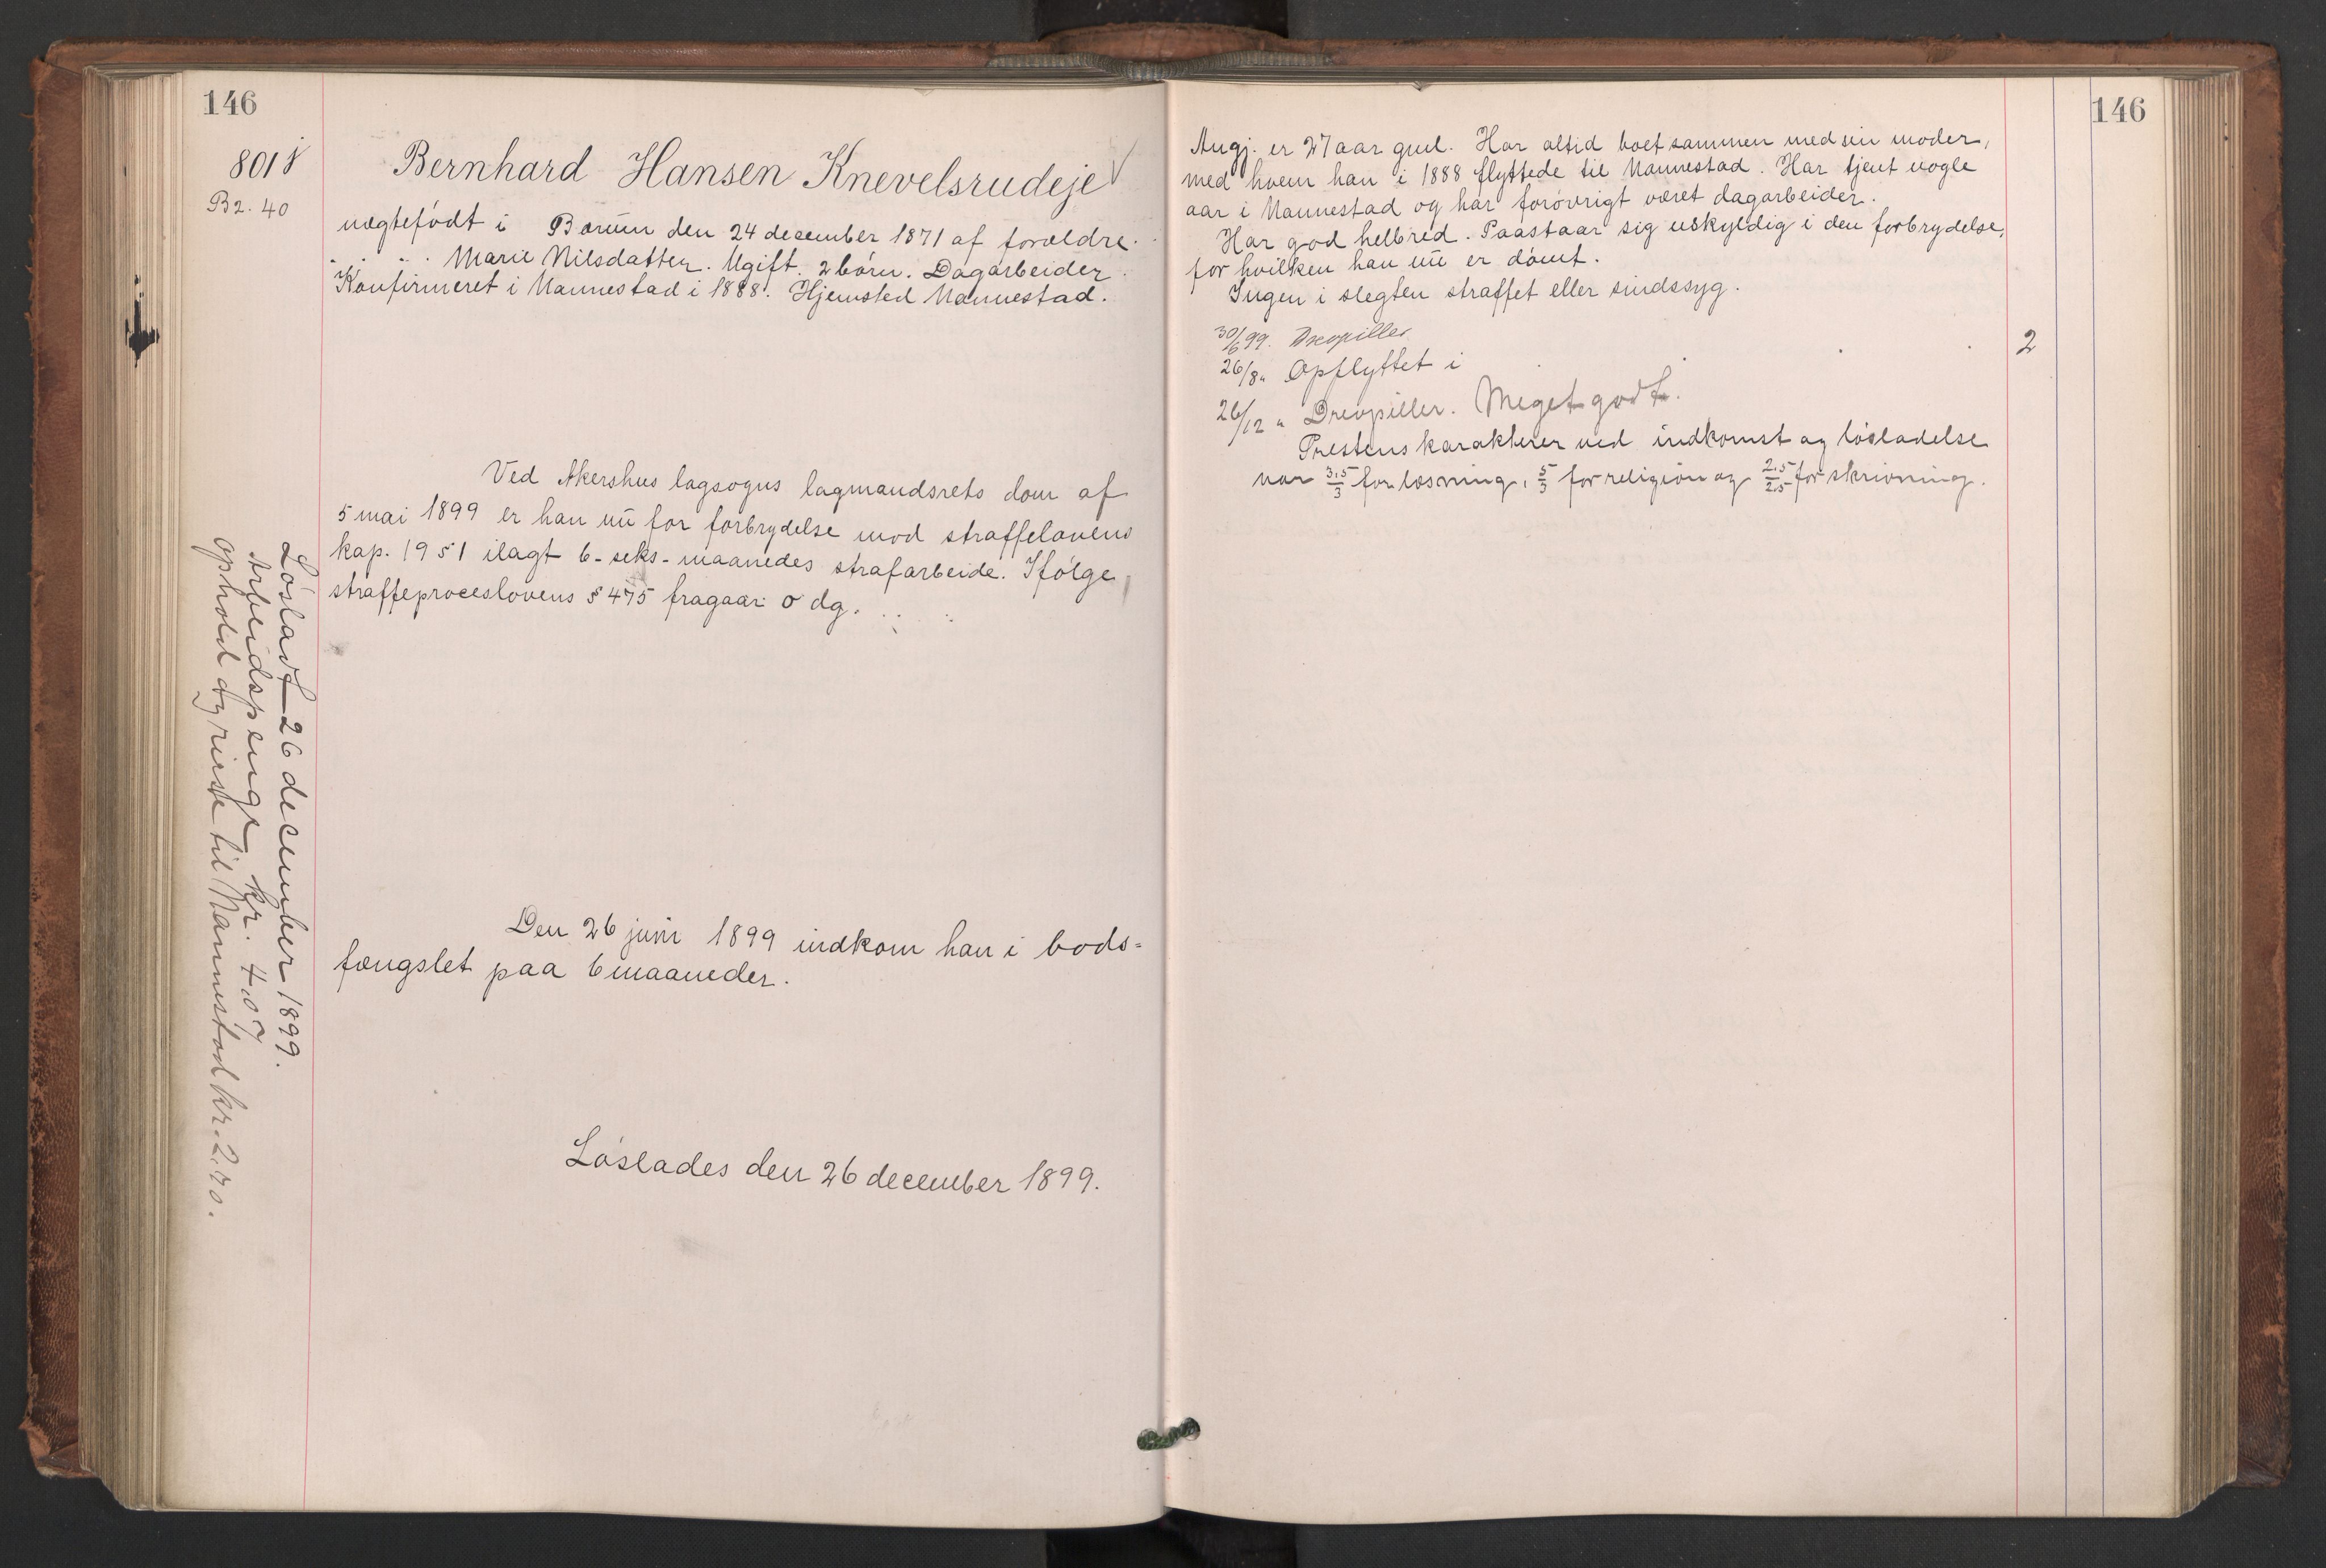 146
8018
B2. 40
Bernhard Hansen Knevelsrudeje
uægtefödt i Bærum den 24 december 1871 af forældre
Marie Nilsdatter. Ugift. 2 börn. Dagarbeider.
Konfirmeret i Nannestad i 1888. Hjemsted Nannestad.
Ved Akershus lagsogns lagmandsrets dom af
5 mai 1899 er han nu for forbrydelse mod straffelovens
kap. 19 51 ilagt 6 - seks - maaneders strafarbeide. Ifölge
straffeproceslovens § 475 fragaar 0 dg.
Den 26 juni 1899 indkom han i bods-
fængslet paa 6 maaneder.
Löslades den 26 december 1899.
Lösladt 26 december 1899.
Arbeidspenge kr. 4.07
ophold og reise til Nannestad kr. 2.70.
146
Angj. er 27 aar gml. Har altid boet sammen med sin moder,
med hvem han i 1888 flyttede til Nannestad. Har tjent nogle
aar i Nannestad og har forövrigt været dagarbeider.
Har god helbred. Paastaar sig uskyldig i den forbrydelse,
for hvilken han nu er dömt.
Ingen i slegten straffet eller sindssyg.
30/6 99. Drevpiller.
26/8 " Opflyttet i 2
26/12 " Drevpiller. Meget godt.
Prestens karakterer ved indkomst og lösladelse
var 3.5/3 for læsning, 5/3 for religion og 2.5/2.5 for skrivning.